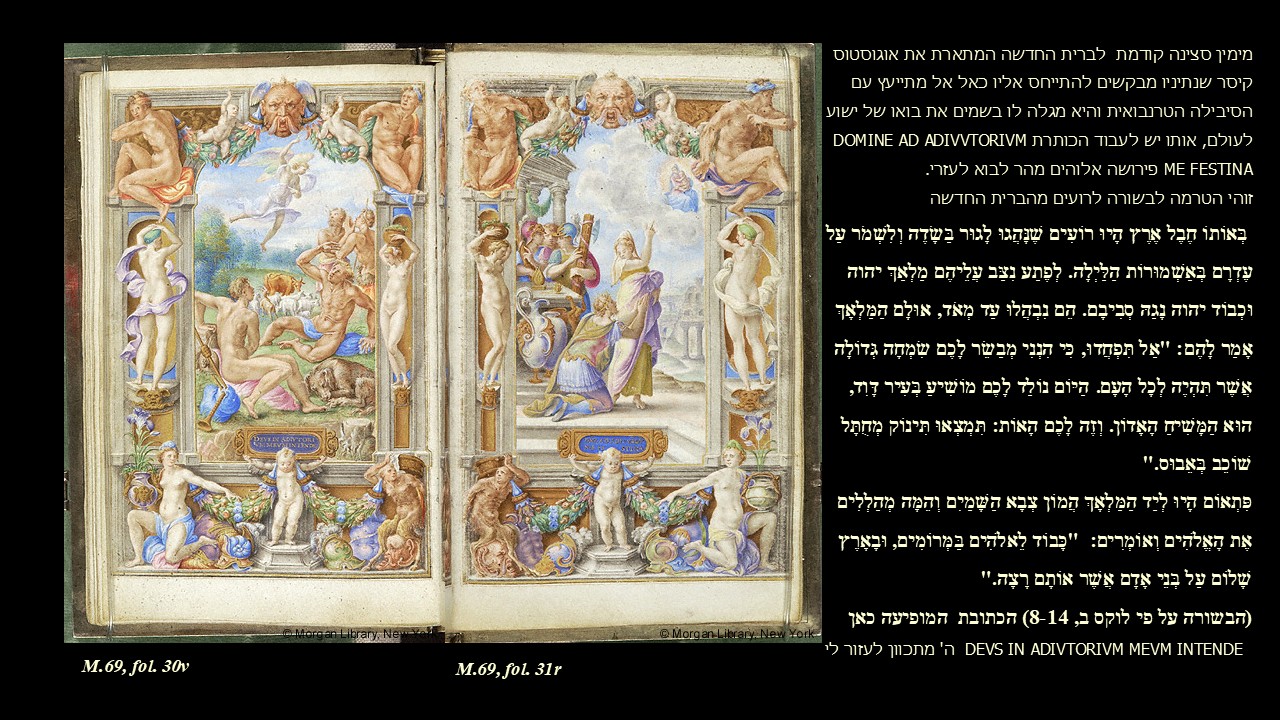 מימין סצינה קודמת לברית החדשה המתארת את אוגוסטוס
קיסר שנתיניו מבקשים להתייחס אליו כאל אל מתייעץ עם
הסיבילה הטרנבואית והיא מגלה לו בשמים את בואו של ישוע
לעולם, אותו יש לעבוד הכותרת DOMINE AD ADIVVTORIVM
ME FESTINA פירושה אלוהים מהר לבוא לעזרי.
זוהי הטרמה לבשורה לרועים מהברית החדשה
בְּאוֹתוֹ חֶבֶל אֶרֶץ הָיוּ רוֹעִים שֶׁנָּהֲגוּ לָגוּר בַּשָּׂדֶה וְלִשְׁמֹר עַל
עֶדְרָם בְּאַשְׁמוּרוֹת הַלַּיְלָה. לְפֶתַע נִצַּב עֲלֵיהֶם מַלְאַךְ יהוה
וּכְבוֹד יהוה נָגַהּ סְבִיבָם. הֵם נִבְהֲלוּ עַד מְאֹד, אוּלָם הַמַּלְאָךְ
אָמַר לָהֶם: "אַל תִּפְחֲדוּ, כִּי הִנְנִי מְבַשֵּׂר לָכֶם שִׂמְחָה גְּדוֹלָה
אֲשֶׁר תִּהְיֶה לְכָל הָעָם. הַיּוֹם נוֹלַד לָכֶם מוֹשִׁיעַ בְּעִיר דָּוִד,
הוּא הַמָּשִׁיחַ הָאָדוֹן. וְזֶה לָכֶם הָאוֹת: תִּמְצְאוּ תִּינוֹק מְחֻתָּל
שׁוֹכֵב בְּאֵבוּס."
פִּתְאוֹם הָיוּ לְיַד הַמַּלְאָךְ הֲמוֹן צְבָא הַשָּׁמַיִם וְהֵמָּה מְהַלְלִים
אֶת הָאֱלֹהִים וְאוֹמְרִים: "כָּבוֹד לֵאלֹהִים בַּמְּרוֹמִים, וּבָאָרֶץ
שָׁלוֹם עַל בְּנֵי אָדָם אֲשֶׁר אוֹתָם רָצָה."
(הבשורה על פי לוקס ב, 8-14) הכתובת המופיעה כאן
DEVS IN ADIVTORIVM MEVM INTENDE ה' מתכוון לעזור לי
© Morgan Library, New York
© Morgan Library, New York
M.69, fol. 30v
M.69, fol. 31r